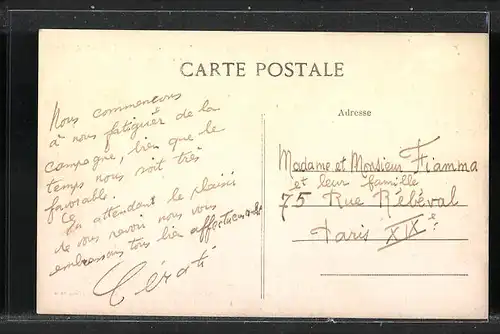 CARTE POSTALE
Adresse
Nous commencons
à nous fatiguer de la
campagne, bien que le
temps nous soit très
favorable.
En attendant le plaisir
de vous revoir nous vous
embrassons tous bien affectueusemt
Madame et Monsieur Fiamma
et leur famille
75 Rue Rébéval
Paris XIXe